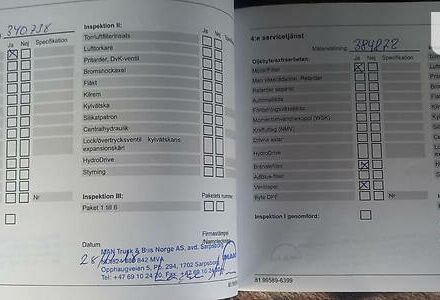 340758
Ja Nej Specifikation
Inspektion II:
Torrluftfilterinsats
Lufttorkare
Pritarder, DvK-ventil
Bromsnockaxel
Fläkt
Kilrem
Kylvätska
Silikatpatron
Centralhydraulik
Lock/övertrycksventil kylvätskans
expansionskärl
HydroDrive
Styrning
Nr
Inspektion III:
Paket 1 till 6
Ja Nej Specifikation
Paketets nummer
Datum
Firmastämpel
MAN Truck & Bus Norge AS, avd. Sarpsborg
842 MVA
Opphaugveien 5, Pb. 294, 1702 Sarpsborg
Tel: +47 69 10 24
4:e servicetjänst
Mätarställning:
Oljebytesarbeten:
Ja Nej Specifikation
Motor/Filter
Retarder
Retarder separat
Automatväxellåda
Fördelningsväxellåda
Momentomvandlarkoppel (WSK)
Kraftuttag (NMV)
HydroDrive
Bränslefilter
Adblue-filter
Ventilspel
Nr
Inspektion I genomförd:
81.99589-6399